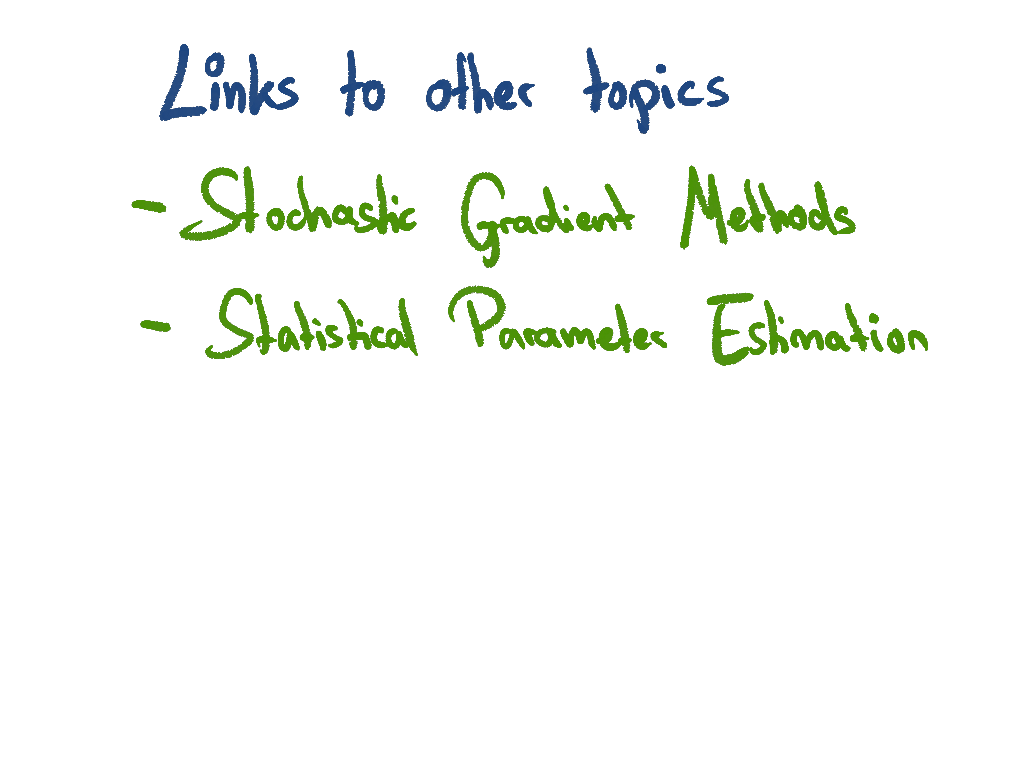 Links to other topics
- Stochastic Gradient Methods
- Statistical Parameter Estimation